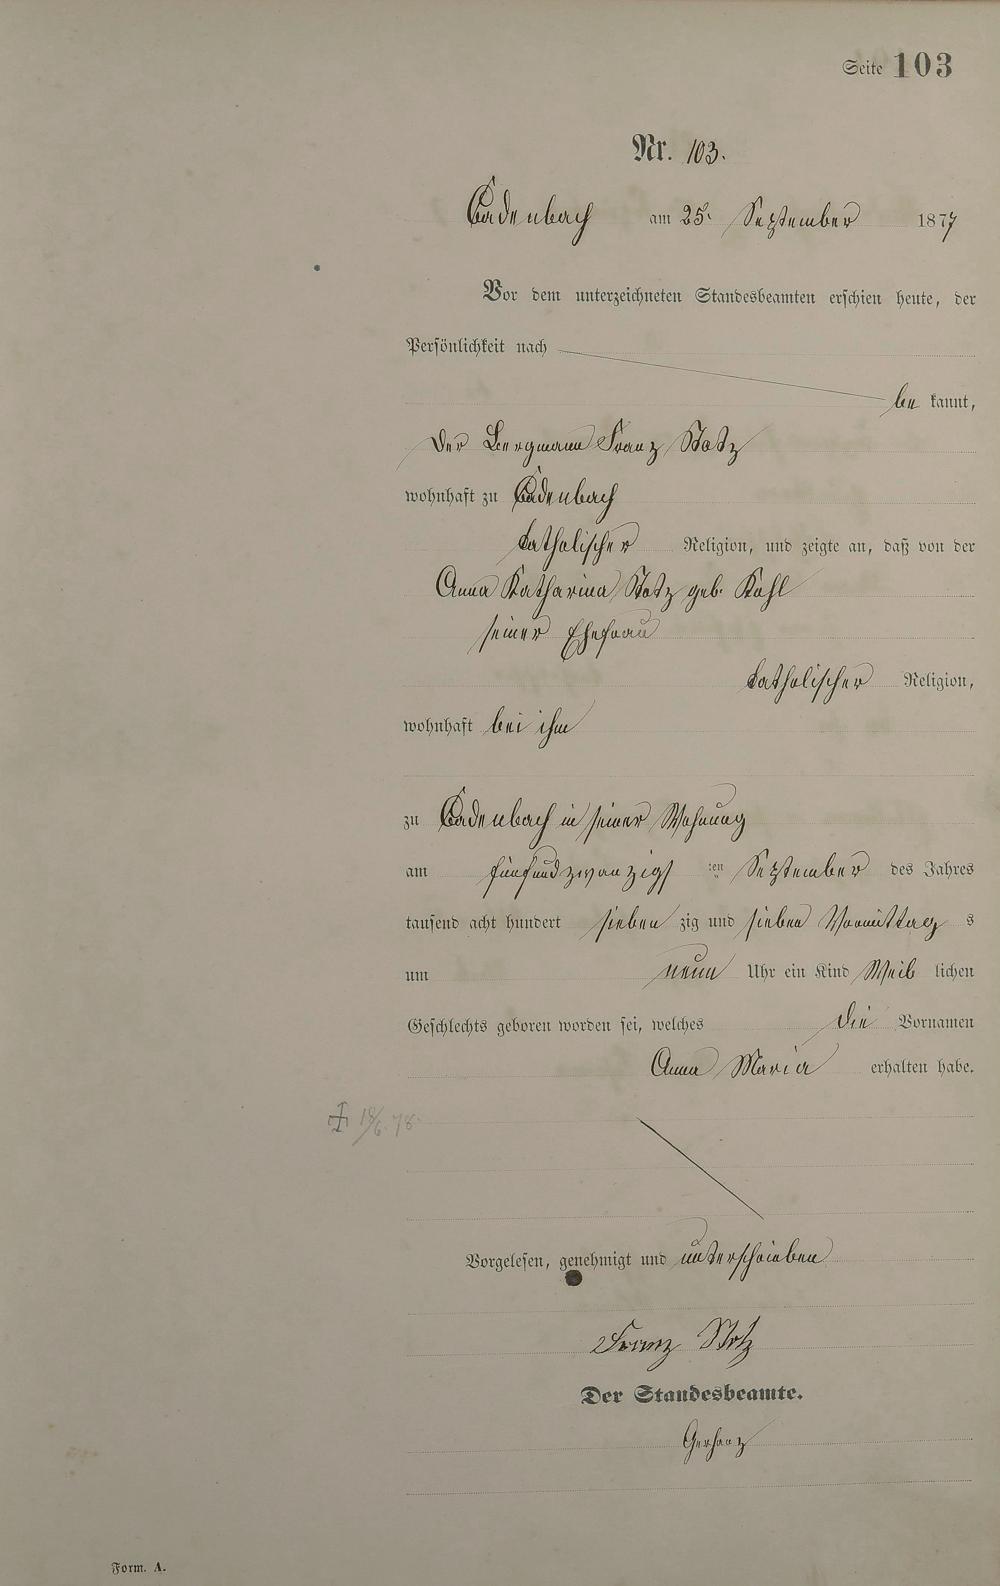 Seite 103
Nr. 103.
Cadenbach am 25. September 1877
Vor dem unterzeichneten Standesbeamten erschien heute, der
Persönlichkeit nach
be kannt,
der Bergmann Franz Stotz
wohnhaft zu Cadenbach
katholischer Religion, und zeigte an, daß von der
Anna Katharina Stotz geb. Kohl
seiner Ehefrau
katholischer Religion,
wohnhaft bei ihm
zu Cadenbach in seiner Wohnung
am fünfundzwanzigs ten September des Jahres
tausend acht hundert sieben zig und sieben Vormittag s
um neun Uhr ein Kind Weib lichen
Geschlechts geboren worden sei, welches die Vornamen
Anna Maria erhalten habe.
18/6. 78.
Vorgelesen, genehmigt und unterschrieben
Franz Stotz
Der Standesbeamte.
Gerharz
Form. A.